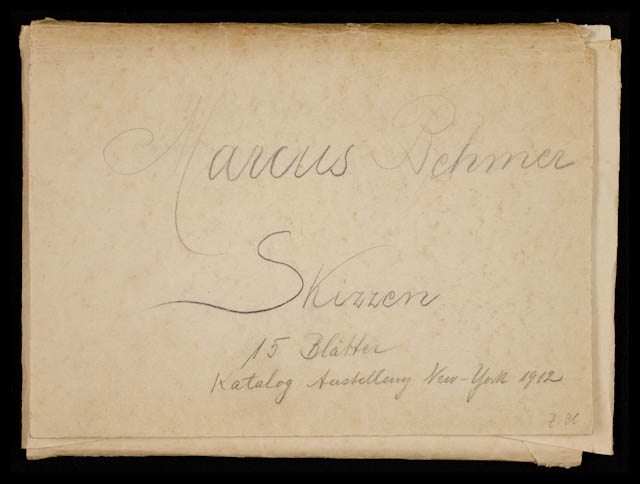 Marcus Behmer
Skizzen
15 Blätter
Katalog Austellung New-York 1912